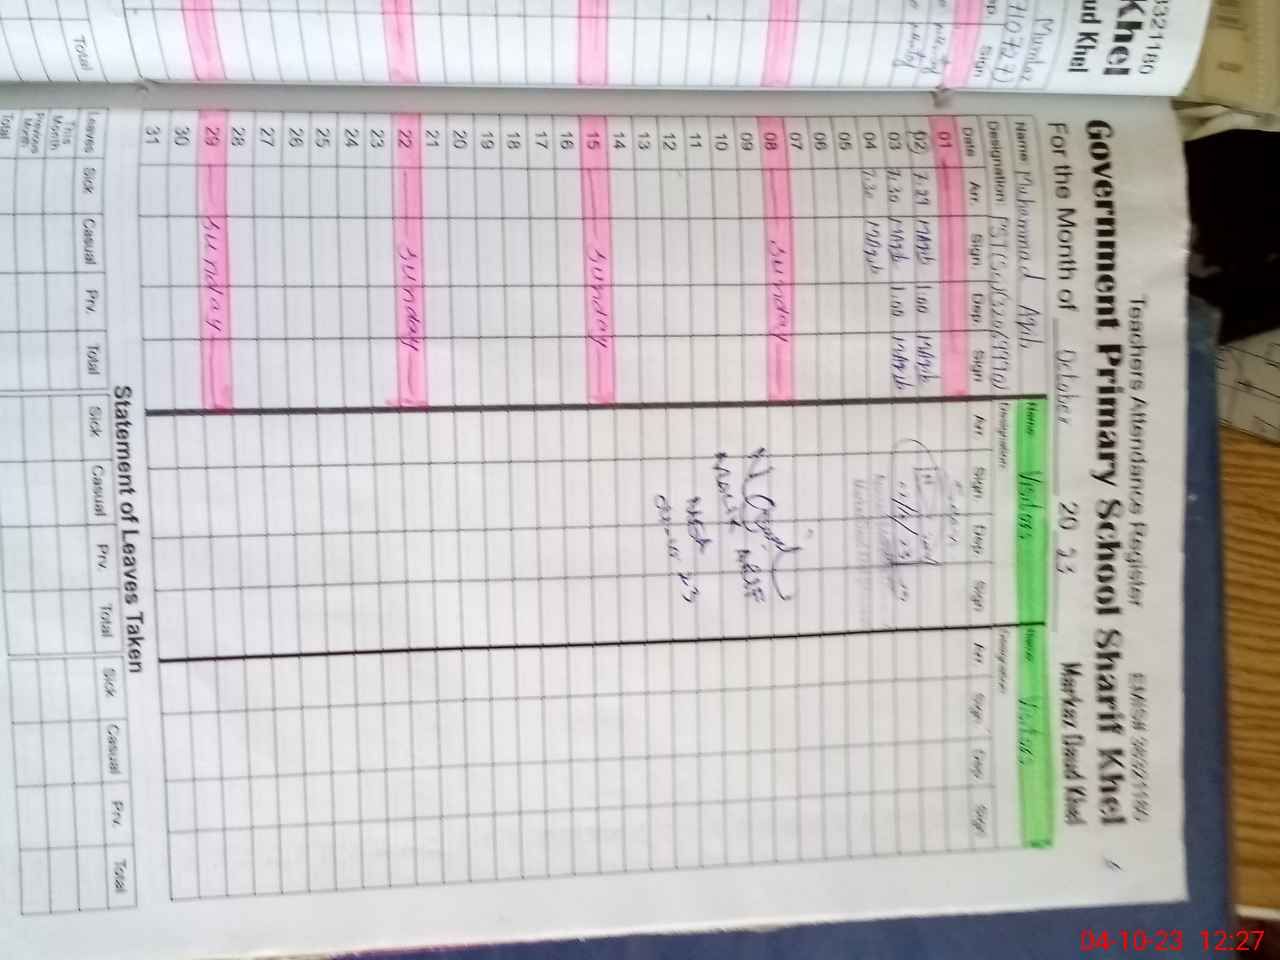 Teachers Attendance Register
Government Primary School Sharif Khel
For the Month of October 20 23 Markaz Daud Khel
Name Muhammad Aqib
Name Visitors
Name Visitors
Designation:
Designation:
Designation:
Date Arr. Sign Dep. Sign Arr. Sign Dep. Sign Arr. Sign Dep. Sign
01
02 7.29 MAqib 1:00 MAqib
03 7.30 MAqib 1:00 MAqib
04 7.30 MAqib
05
06
07
08 Sunday
09
10
11
12
13
14
15 Sunday
16
17
18
19
20
21
22 Sunday
23
24
25
26
27
28
29 Sunday
30
31
Statement of Leaves Taken
Leaves Sick Casual Prv. Total Sick Casual Prv. Total Sick Casual Prv. Total
This Month
Previous Month
Total
3321180
Khel
ud Khel
Mumtaz
Sign
Total
04-10-23 12:27